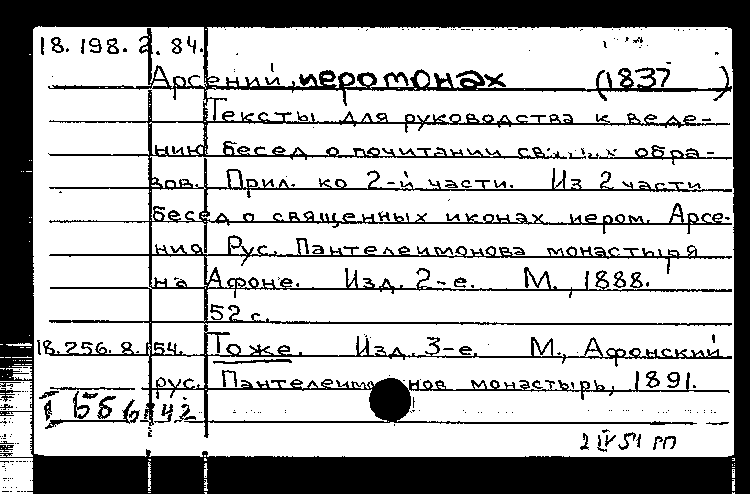 18. 198. 2. 84.
Арсений, иеромонах (1837 )
Тексты для руководства к веде-
нию бесед о почитании обра-
зов. Прил. ко 2-й части. Из 2 части
бесед о священных иконах иером. Арсе-
ния Рус. Пантелеимонова монастыря
на Афоне. Изд. 2-е. М., 1888.
52 с.
18.256.8.154. Тоже. Изд. 3-е. М., Афонский
рус. Пантелеимонов монастырь, 1891.
2 IV 51 m